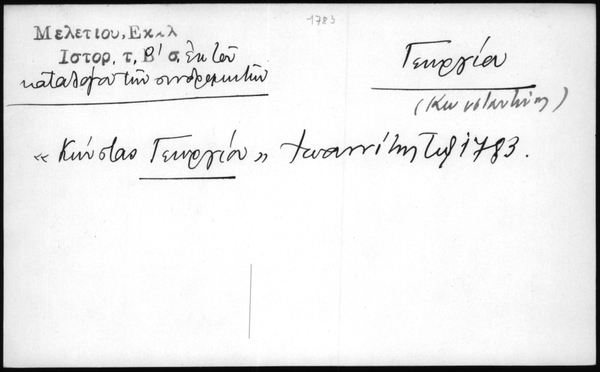 1783
Μελετίου, Εκκλ
Ιστορ, τ, Β' σ, ἐκ τοῦ
καταλόγου τῶν συνδρομητῶν
Γεωργίου
(Κωνσταντῖνος)
« Κώνστας Γεωργίου » Ἰωαννίτης 1783.